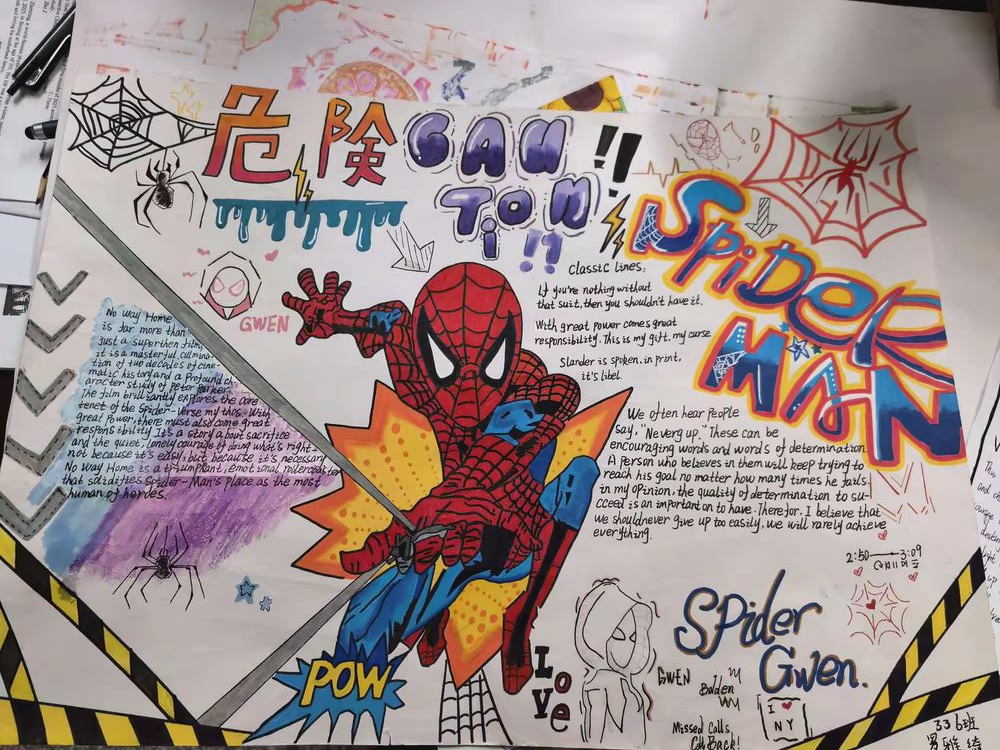 危険
CAU
TiON
!!
!!
SPiDER
MAN
GWEN
No way Home
is far more than
just a superhen film,
it is a masterful culmina-
tion of two decades of cine-
matic history and a profound ch-
aracter study of peter Parker.
The film brilliantly explores the core
tenet of the Spider-Verse my thos. With
great Power, there must also come great
responsibility. It's a story about sacrifice
and the quiet, lonely courage of doing what's right
not because it's easy, but because it's necessary
No Way Home is a triumphant, emotional rollercoaster
that solidifies Spider-Man's place as the most
human of heroes.
Classic lines:
If you're nothing without
that suit, then you shouldn't have it.
With great power comes great
responsibility. This is my gift, my curse
Slander is spoken, in print,
it's libel.
We often hear people
say, "Never g up." These can be
encouraging words and words of determination
A person who believes in them will keep trying to
reach his goal no matter how many times he fails.
in my opinion, the quality of determination to su-
cceed is an important on to have. Therefor, I believe that
we should never give up too easily, we will rarely achieve
everything.
2:50 3:09
POW
Love
Spider
Gwen.
GWEN
I ♥
NY
Missed Calls,
Call Back!
336班